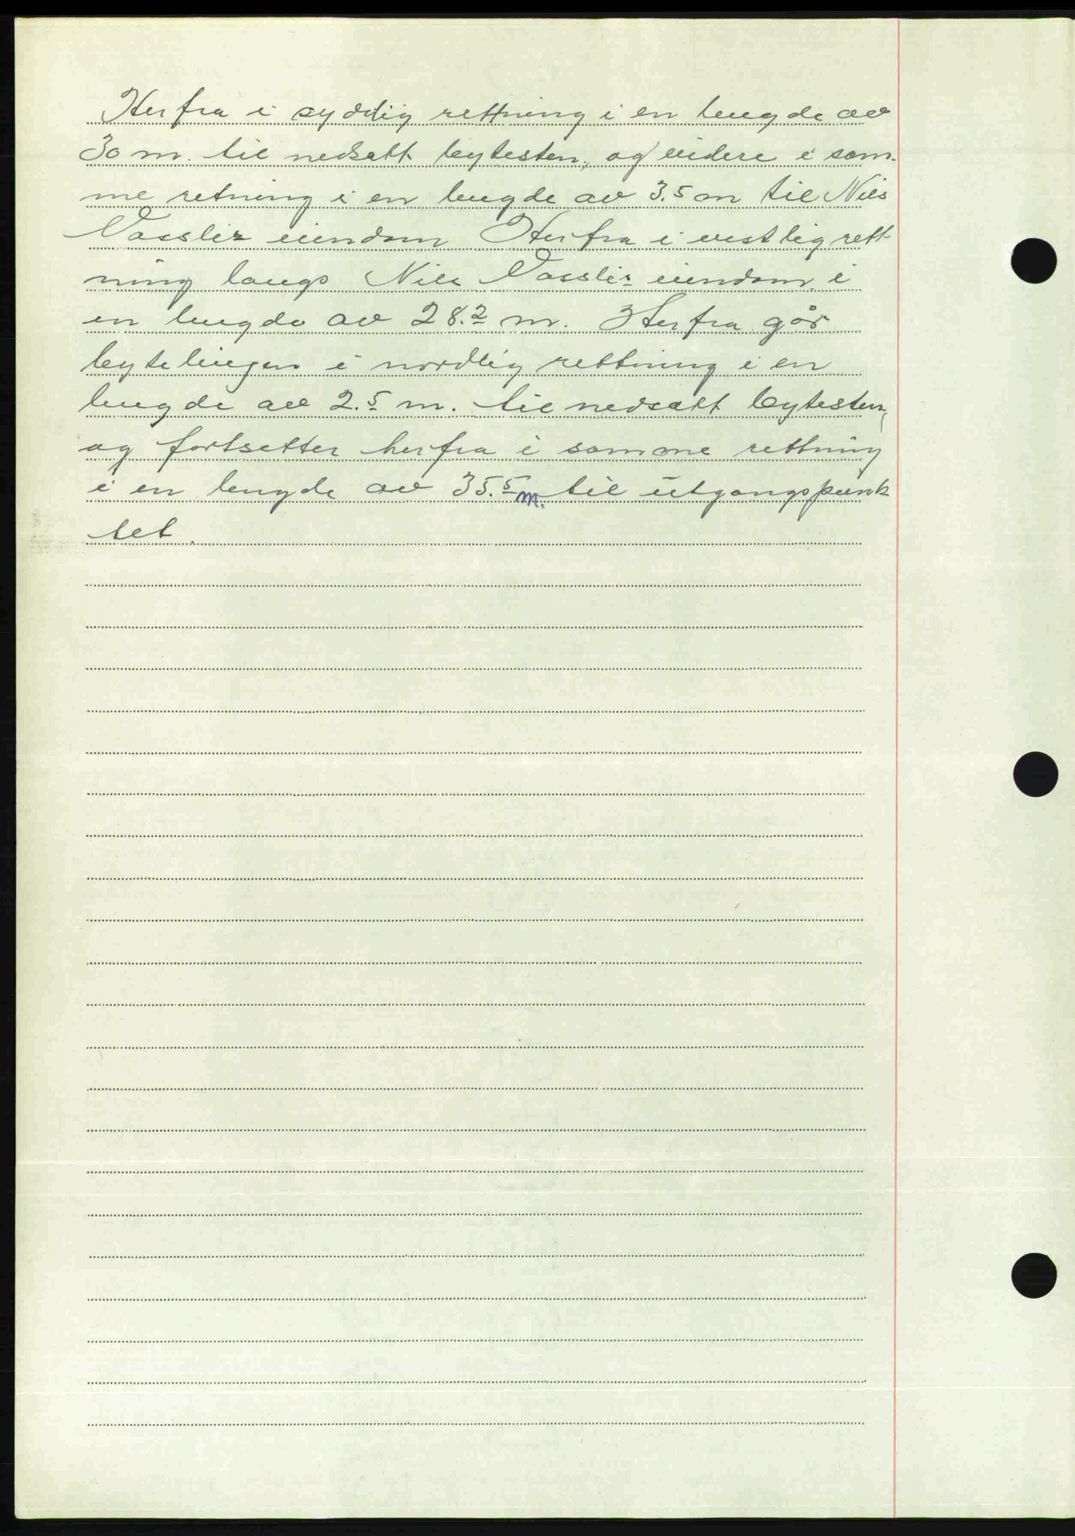 Herfra i syddlig rettning i en lengde av
30 m. til nedsatt bytesten, og videre i sam-
me retning i en lengde av 3.5 m til Nils
eiendom Herfra i vestlig rett-
ning langs Nils eiendom i
en lengde av 28.2 m. Herfra går
bytelingen i nordlig rettning i en
lengde av 2.5 m. til nedsatt bytesten,
og fortsetter herfra i samme rettning
i en lengde av 35.5 m. til utgangspunk
tet.